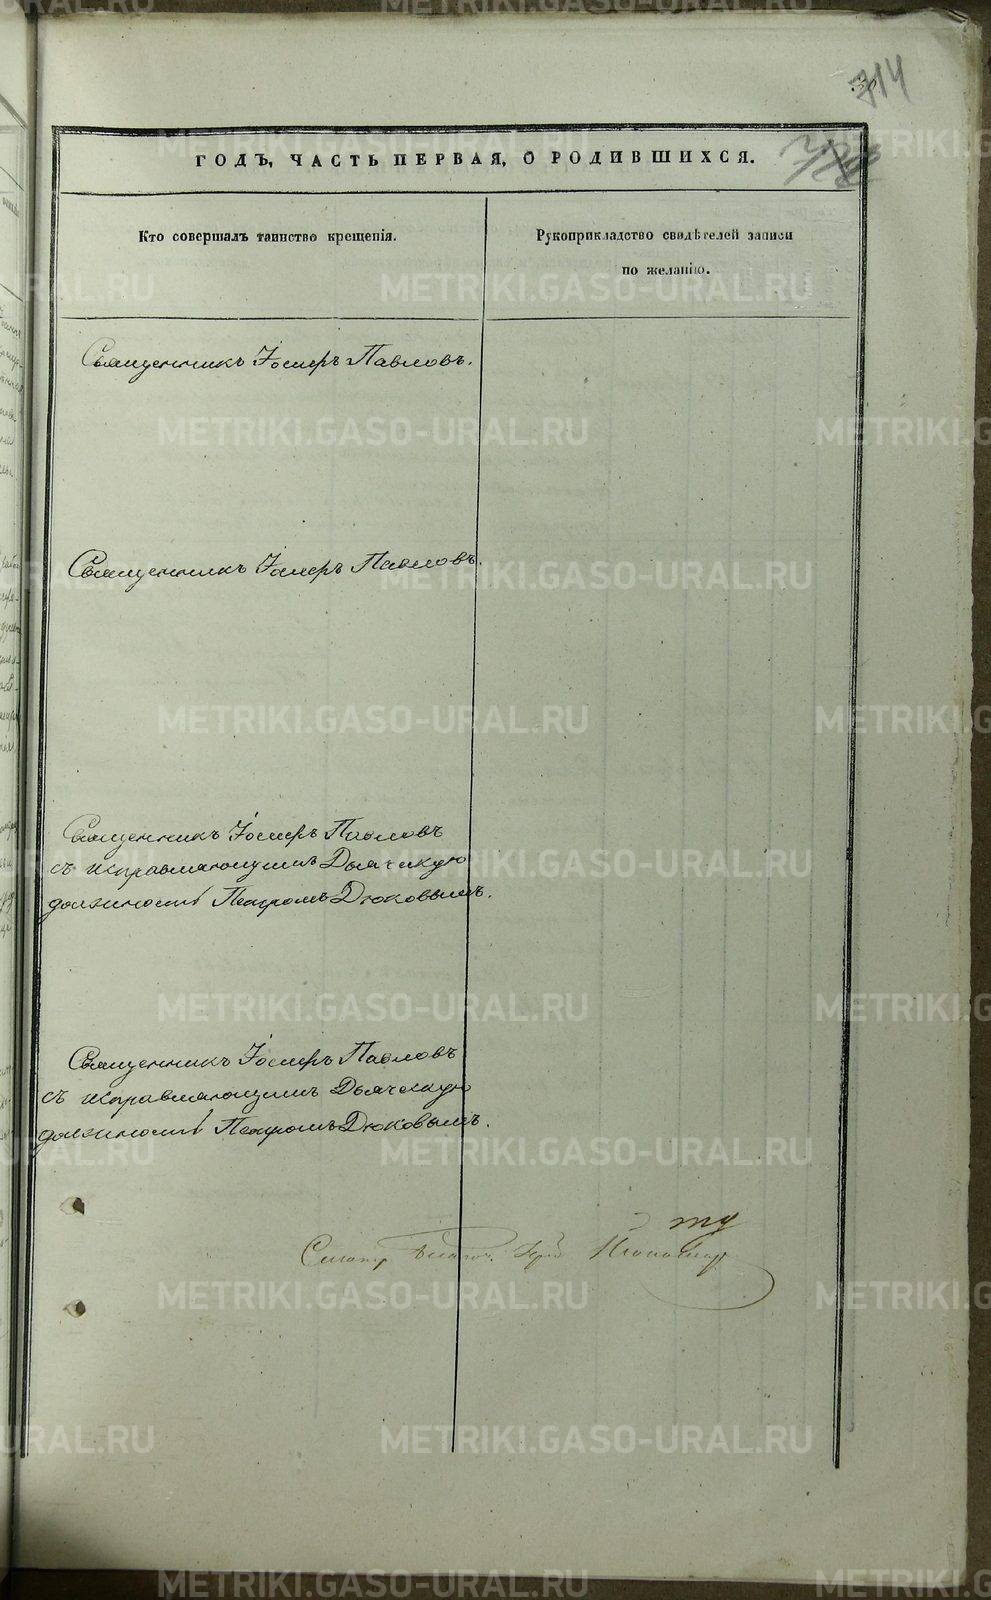 714
ГОДЪ, ЧАСТЬ ПЕРВАЯ, О РОДИВШИХСЯ.
Кто совершалъ таинство крещенія.
Рукоприкладство свидѣтелей записи
по желанію.
Священникъ Іосифъ Павловъ.
Священникъ Іосифъ Павловъ.
Священникъ Іосифъ Павловъ
съ исправляющимъ Дьяческую
должность Петромъ Дюковымъ.
Священникъ Іосифъ Павловъ
съ исправляющимъ Дьяческую
должность Петромъ Дюковымъ.
METRIKI.GASO-URAL.RU